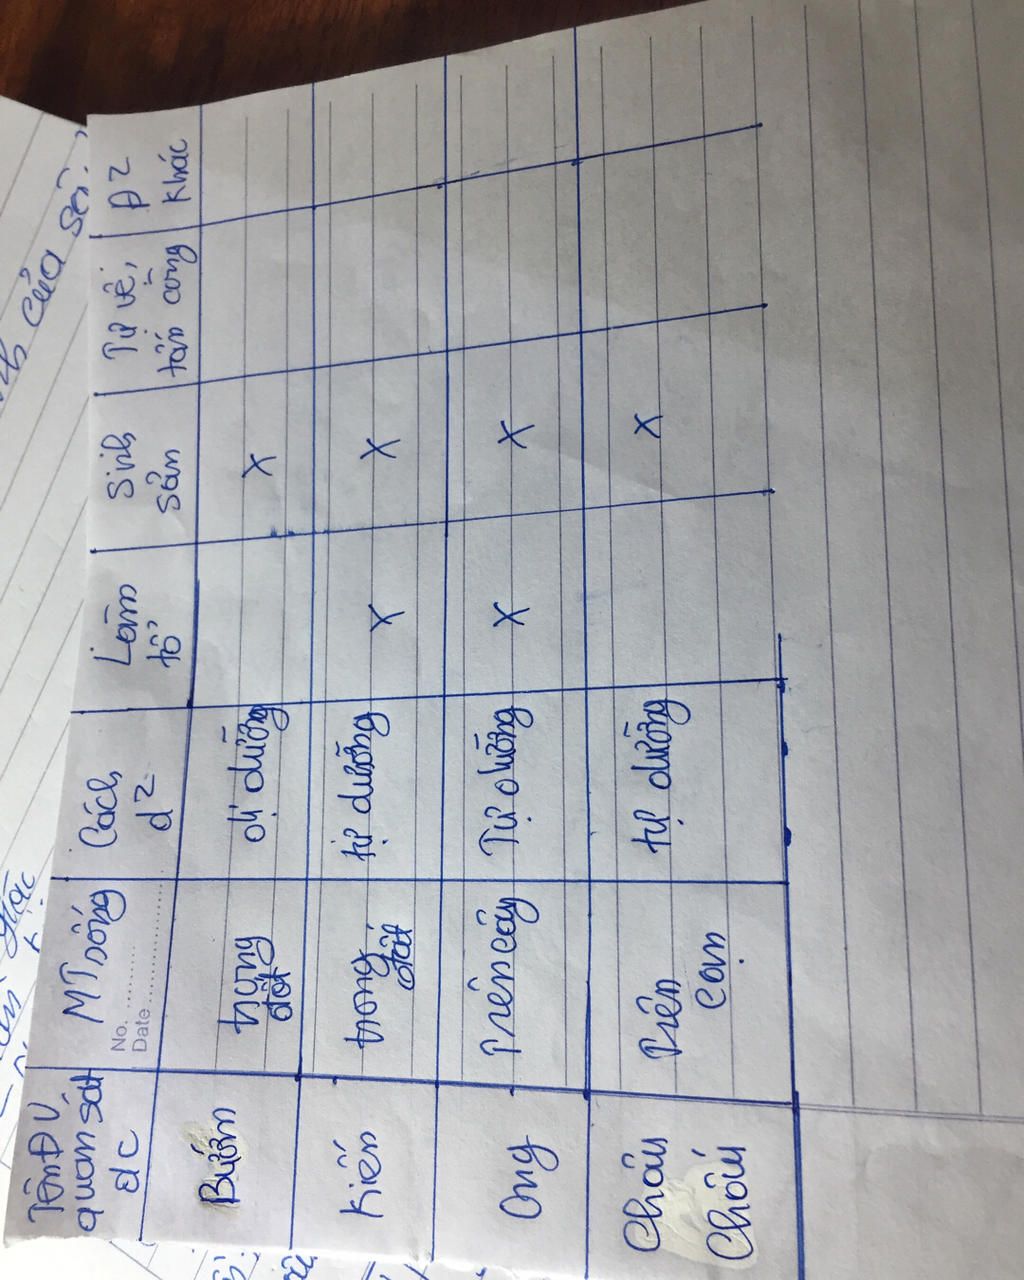 Tên ĐV
quan sát
đc
MT sống
No.
Date
Cách
d2
Làm
tổ
Sinh
sản
Tự vệ,
tấn công
Đ2
khác
Bướm
trong
đất
dị dưỡng
X
Kiến
trong
đất
tự dưỡng
X
X
Ong
Trên cây
Tự dưỡng
X
X
Châu
Chấu
Trên
cạn
tự dưỡng
X
của sên.